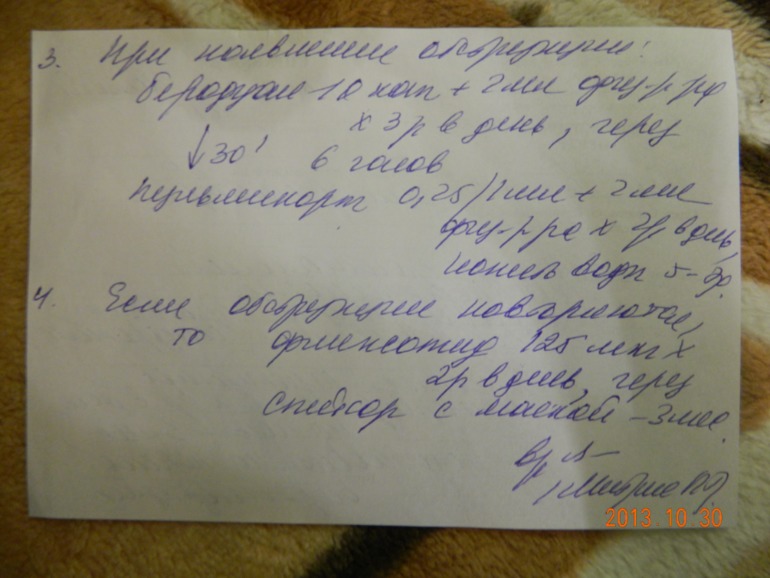 3. При появлении обструкции:
беродуал 10 кап + 2 мл физ-р-ра
х 3 р в день, через
↓30' 6 часов
пульмикорт 0,25/1 мл + 2 мл
физ-р-ра х 2 р в день,
5-
4. Если обструкции повторяются,
то фликсотид 125 мкг х
2 р в день, через
спейсор с маской - 3 мес.
вр
2013.10.30